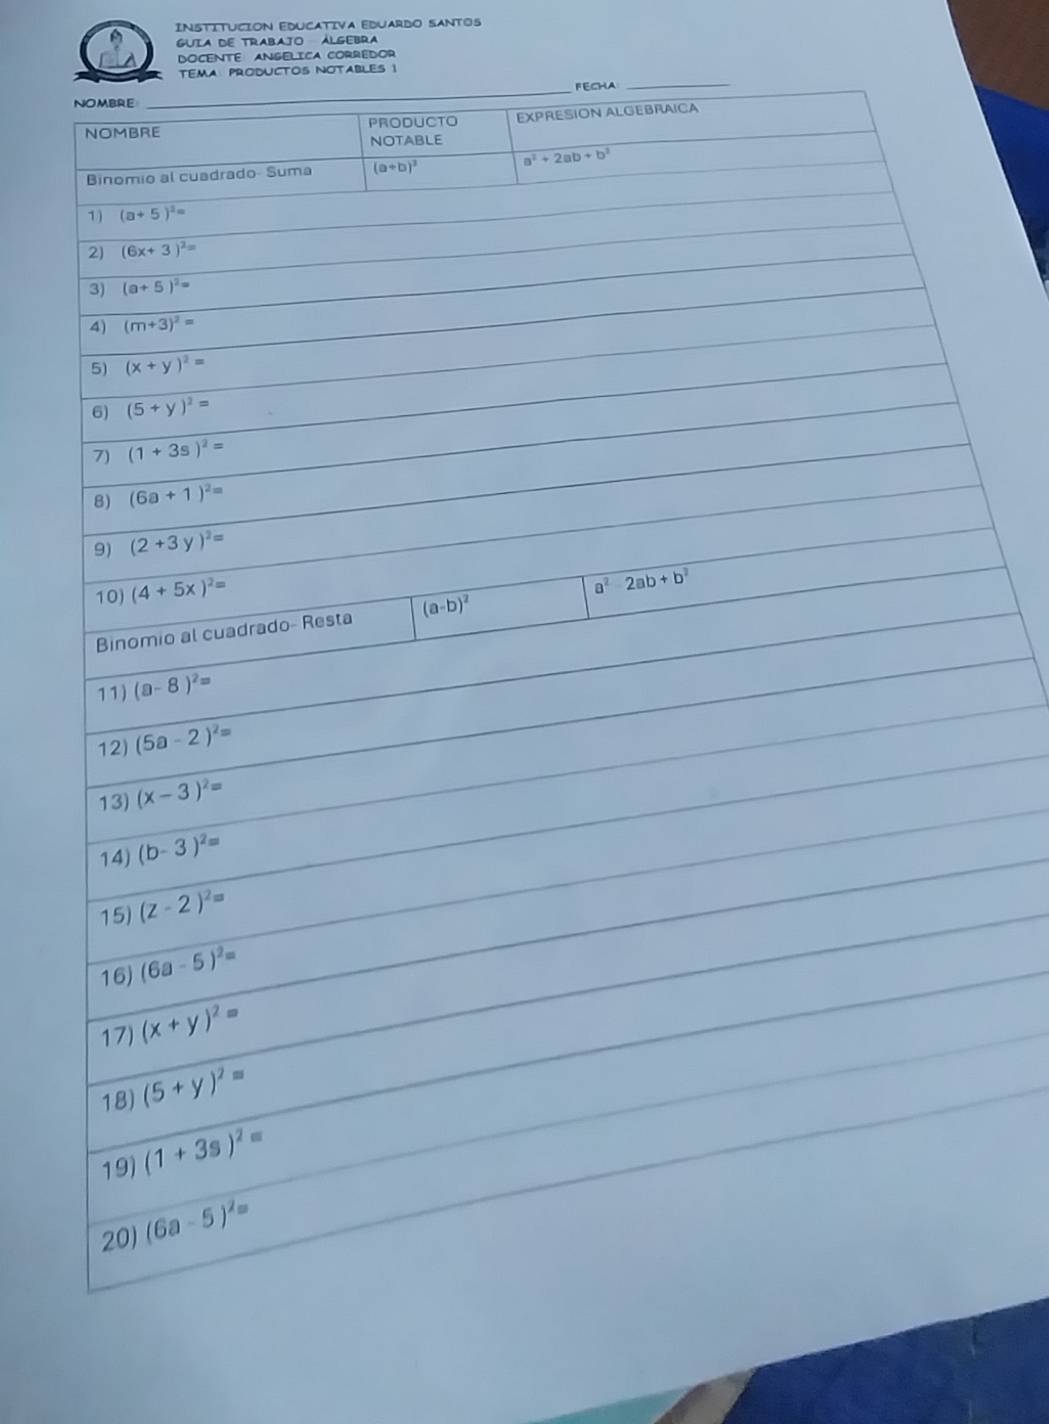 INSTITUCION EDUCATIVA EDUARDO SANTOS
GUIA DE TRABAJO - ÁLGEBRA
DOCENTE: ANGELICA CORREDOR
TEMA: PRODUCTOS NOTABLES 1
NOMBRE: ____ FECHA: ____
NOMBRE PRODUCTO NOTABLE EXPRESION ALGEBRAICA
Binomio al cuadrado- Suma (a+b)² a² + 2ab + b²
1) (a+ 5 )²=
2) (6x+ 3 )²=
3) (a+ 5 )²=
4) (m+3)² =
5) (x + y )² =
6) (5 + y )² =
7) (1 + 3s )² =
8) (6a + 1 )²=
9) (2 +3 y )²=
10) (4 + 5x )²=
Binomio al cuadrado- Resta (a-b)² a² 2ab + b²
11) (a- 8 )²=
12) (5a - 2 )²=
13) (x – 3 )²=
14) (b- 3 )²=
15) (z - 2 )²=
16) (6a - 5 )²=
17) (x + y )² =
18) (5 + y )² =
19) (1 + 3s )² =
20) (6a - 5 )²=